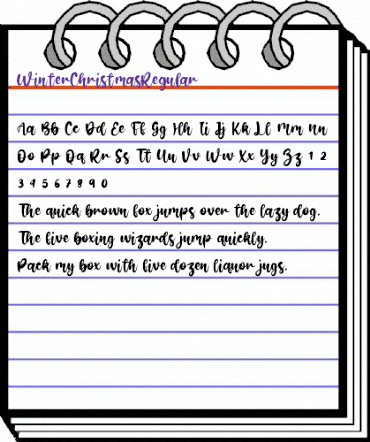 WinterChristmasRegular
Aa Bb Cc Dd Ee Ff Gg Hh Ii Jj Kk Ll Mm Nn
Oo Pp Qq Rr Ss Tt Uu Vv Ww Xx Yy Zz 1 2
3 4 5 6 7 8 9 0
The quick brown fox jumps over the lazy dog.
The five boxing wizards jump quickly.
Pack my box with five dozen liquor jugs.